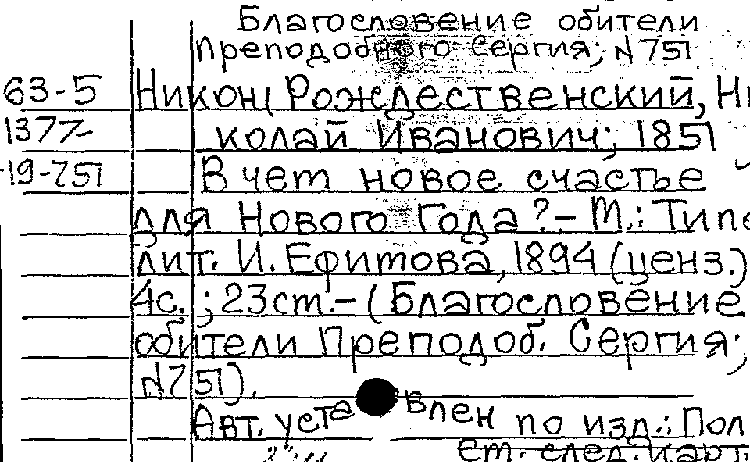 Благословение обители
Преподобного Сергия; N 751
63-5 Никон (Рождественский, Ни
1377 колай Иванович; 1851
-19-751 В чет новое счастье
для Нового Года? - М.: Типо
лит. И. Ефимова, 1894 (ценз.)
4с.; 23см. - (Благословение
обители Преподоб. Сергия;
N751).
Авт. установлен по изд.: Пол
см. след. карт